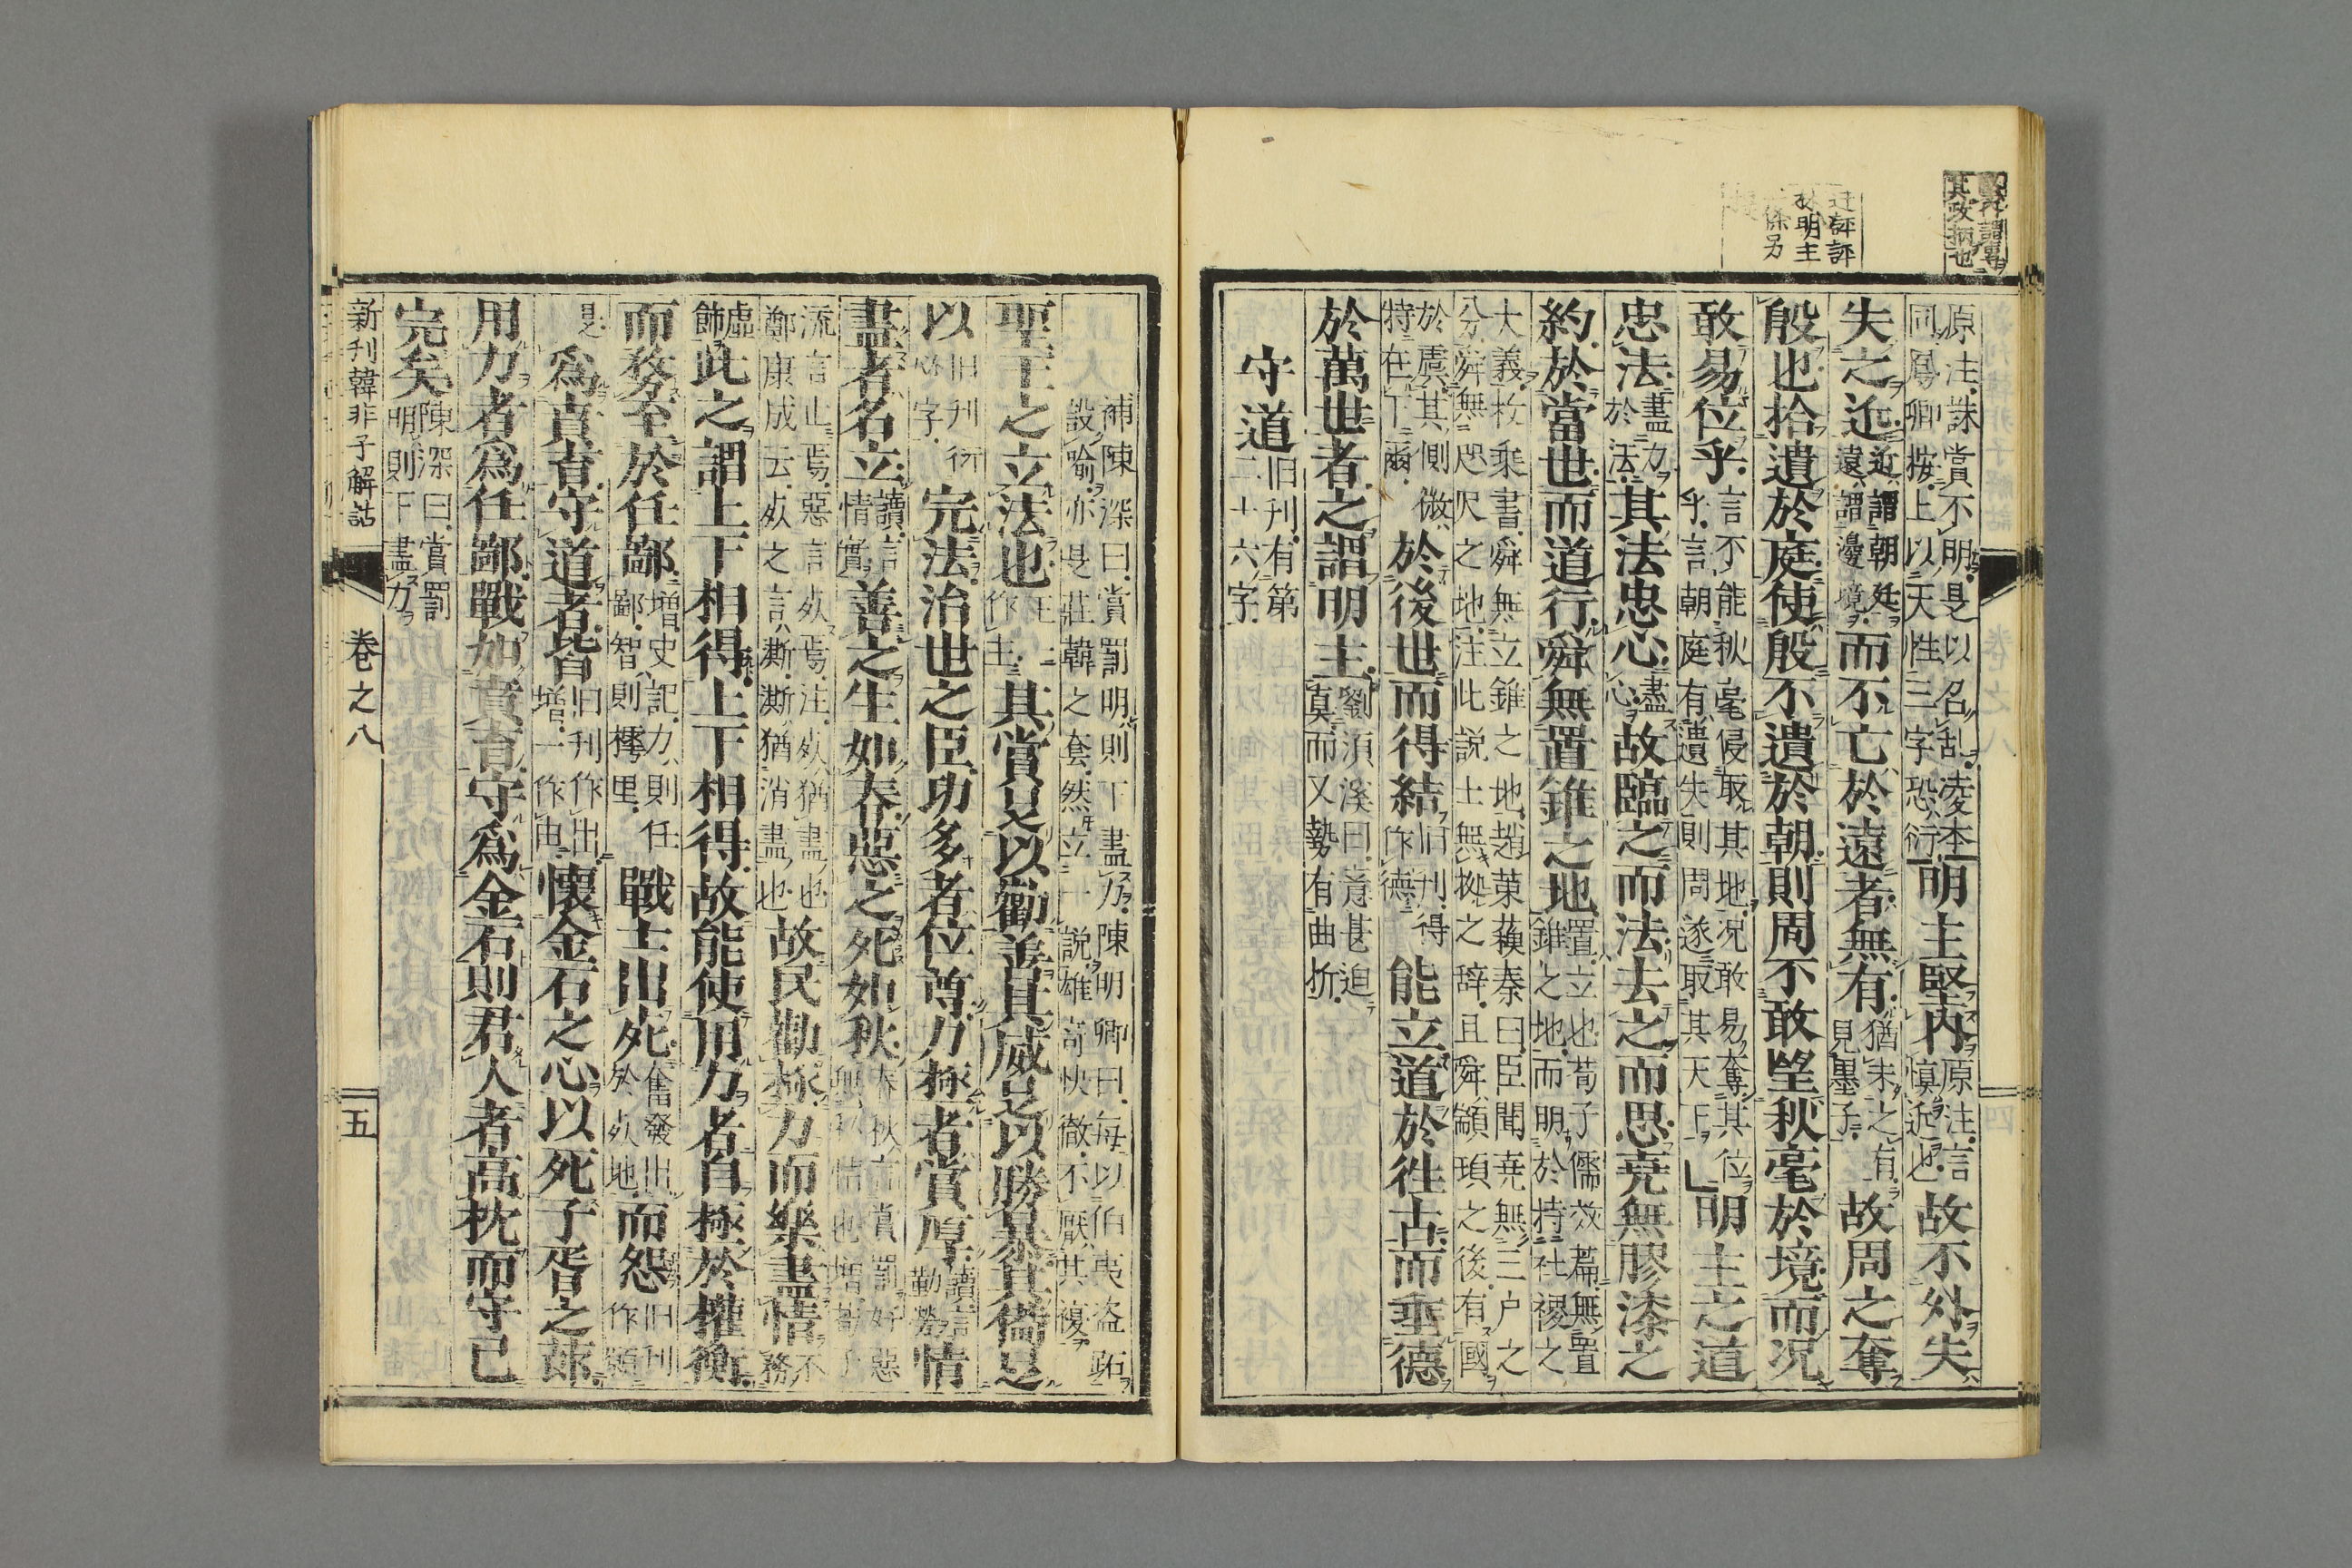 其政柄也
迂評評
明主
原注誅賞不明是以名乱凌本
同鳳卿按上以天性三字恐衍明主堅内原注言慎近也故不外失
失之近近謂朝廷遠謂邊境而不亡於遠者無有猶未之有見墨子故周之奪
殷也拾遺於庭使殷不遺於朝則周不敢望秋毫於境而况
敢易位乎言不能秋毫侵取其地况敢易奪其位乎言朝庭有遺失則周遂取其天下明主之道
忠法盡力於法其法忠心盡心故臨之而法去之而思堯無膠漆之
約於當世而道行舜無置錐之地置立也荀子儒效篇無置錐之地而明於持社稷之
大義枚乗書舜無立錐之地蘇秦曰臣聞堯無三户之
分舜無咫尺之地注此説士無拠之辞且舜顓頊之後有國
於虞其側微特在下爾於後世而得結旧刋得作德能立道於徃古而垂德
於萬世者之謂明主劉湏溪曰意甚迫真而又勢有曲折
守道旧刋有第二十六字
補陳深曰賞罰明則下盡力陳明卿曰每以伯夷盗跖
設喻亦是莊韓之套然立一説雄竒快徹不厭其複
聖王之立法也王一作主其賞足以勸善其威足以勝暴其備足
以旧刋衍必字完法治世之臣功多者位尊力極者賞厚情
盡者名立讀言情實善之生如春惡之死如秋
流言止焉惡言死焉注死猶盡也
鄭康成云死之言澌澌猶消盡也故民勸極力而樂盡情不務
虚飾此之謂上下相得上下相得故能使用力者自極於權衡
而務至於任鄙増史記力則任鄙智則樗里戰士出死奮發出於死地而怨旧刋作願
是為賁育守道者皆旧刋作出増一作由懷金石之心以死子胥之
用力者為任鄙戰如賁育守為金石則君人者高枕而守己
完矣陳深曰賞罰明則下盡力
新刋韓非子解詁
卷之八
五